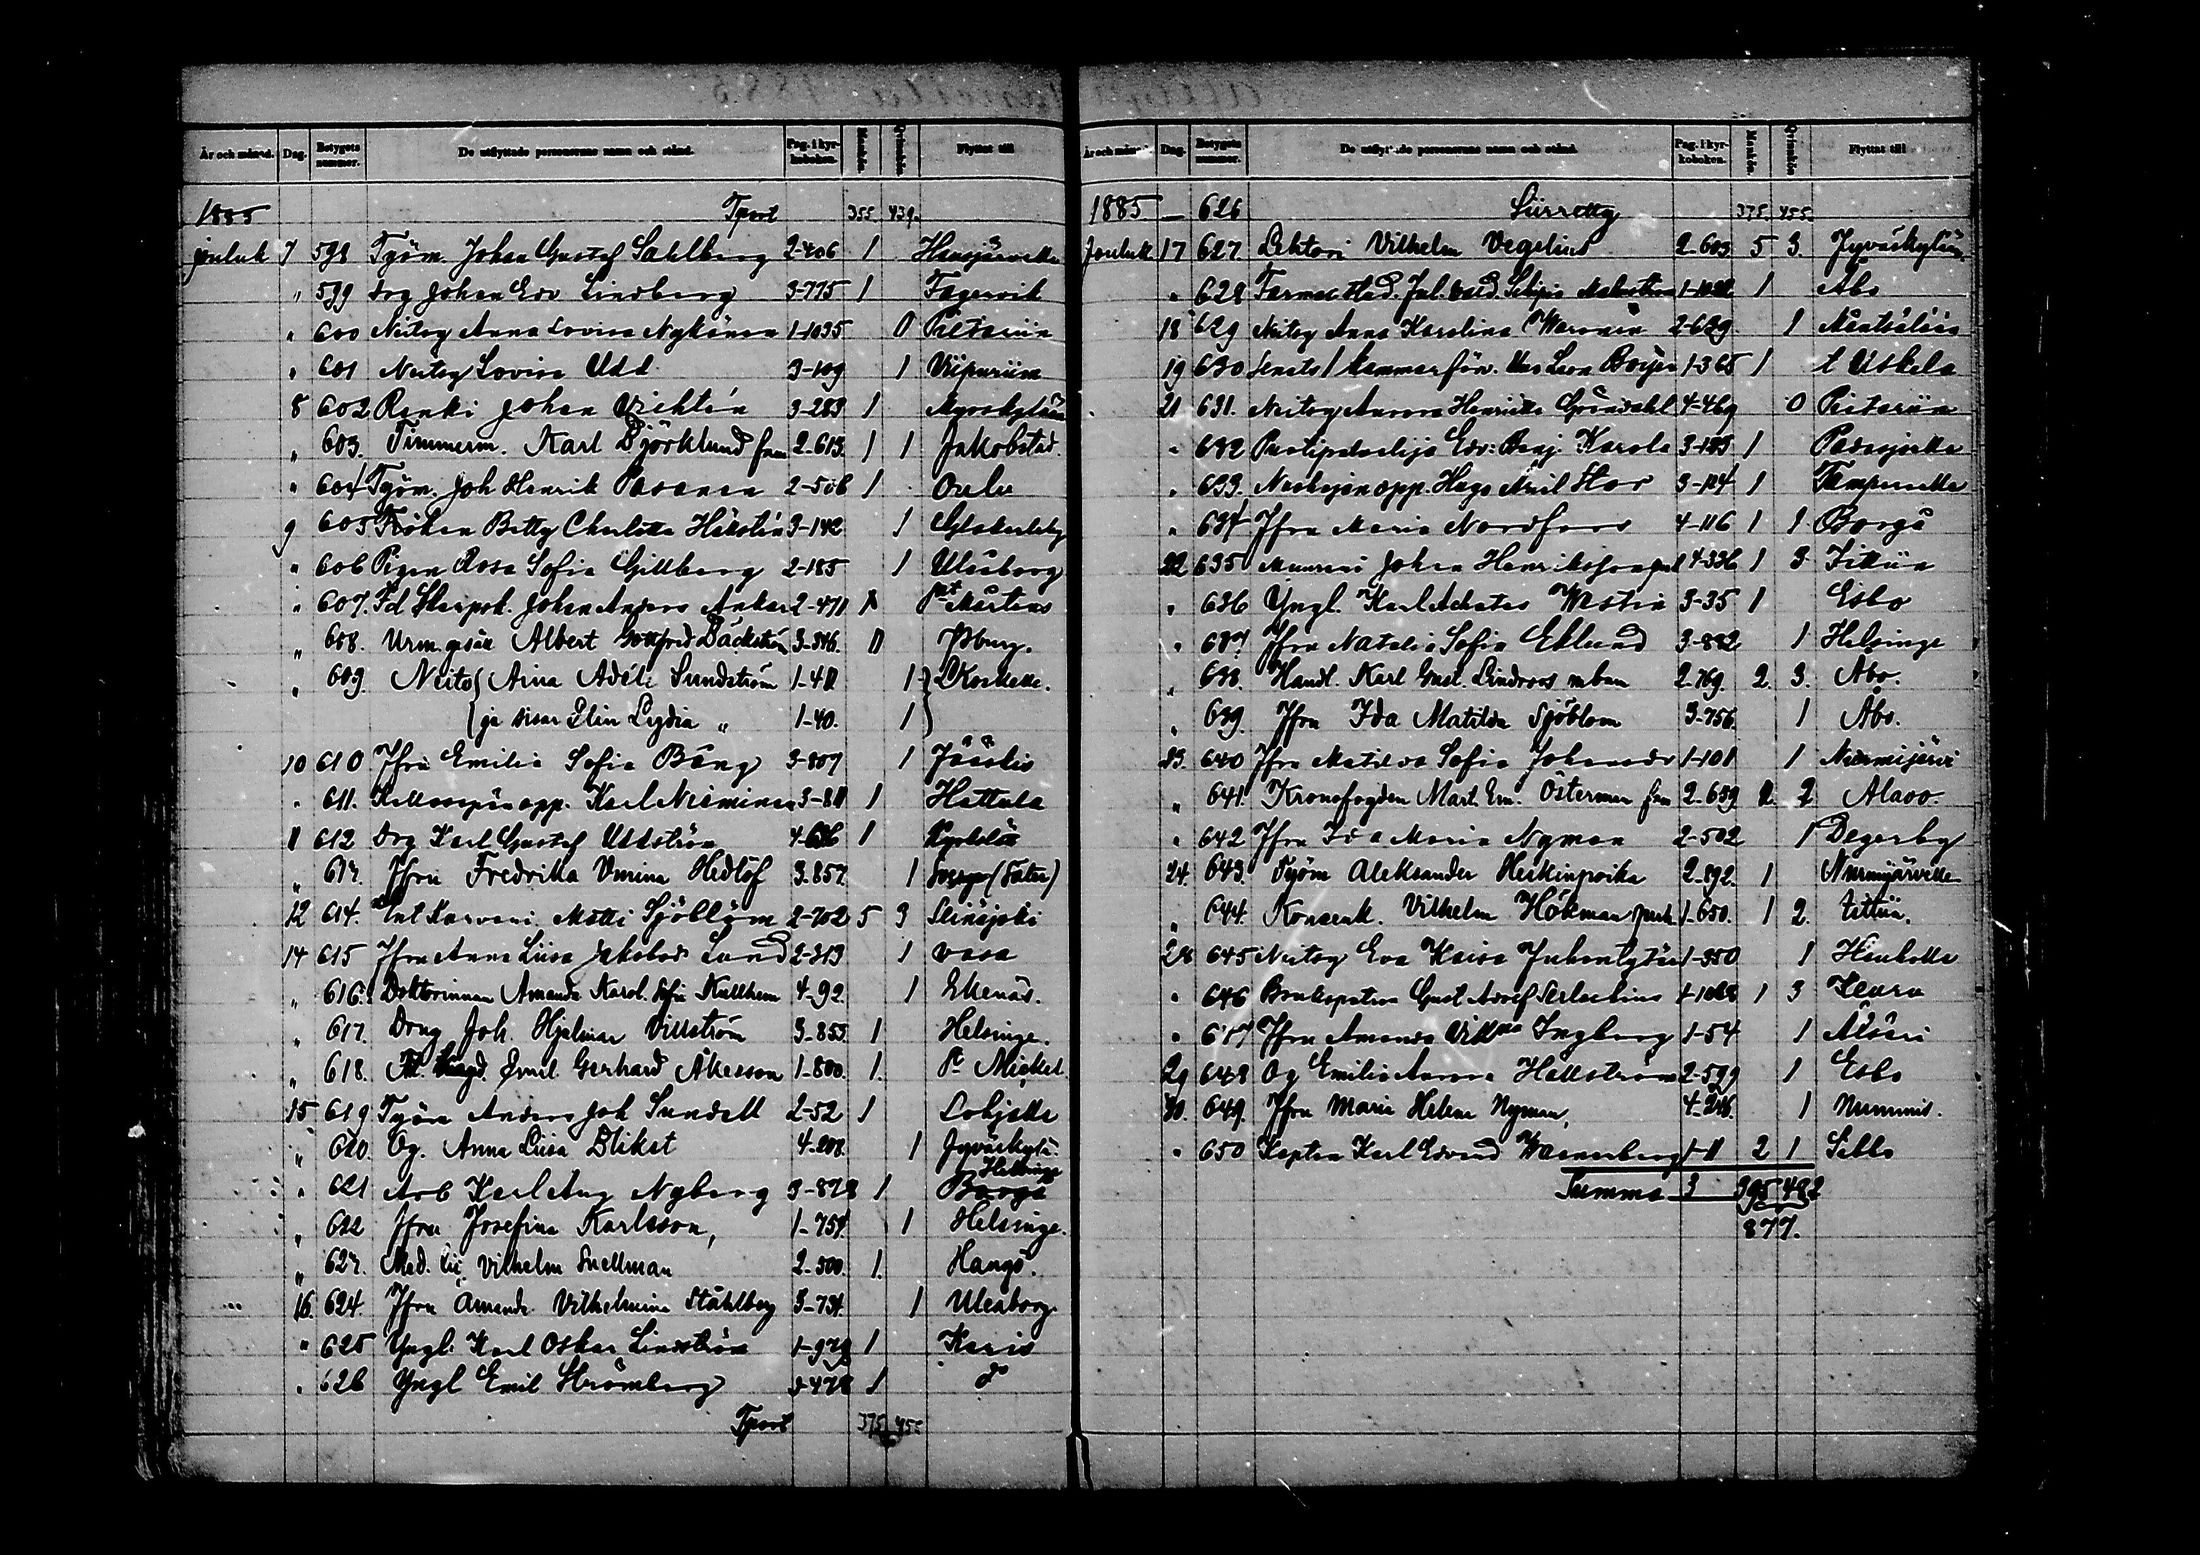 År och månad. Dag. Betygets nummer. De utflyttade personernas namn och stånd. Pag. i kyrkoboken. Mankön. Qvinkön. Flyttat till
1885 Tport 355. 439.
jouluk 7 598 Työm. Johan Gustaf Sahlberg 2-406 1 Hausjärvelle
" 599 Drg Johan Edv Lindberg 3-775 1 Fagervik
" 600 Neitsy Anna Lovisa Nykänen 1-1035 0 Pietariin
" 601 Neitsy Lovisa Udd 3-109 1 Viipuriin
8 602 Renki Johan Vichtén 3-283 1 Myrskylään
" 603. Timmerm. Karl Björklund fam 2-613. 1 1 Jakobstad.
" 604 Työm. Joh Henrik Pasanen 2-506 1 Oulu
9 605 Fröken Betty Charlotta 3-142 1
" 606 Pigan Rosa Sofia Gillberg 2-185 1 Uleåborg
" 607. Fd Skarpsk. Johan Anders Ankar 2-471 1 St Mårtens
" 608. Urm. gesäll Albert Gottfried Bäckström 3-346. 0 Pburg.
" 609. Neits { Aina Adéle Sundström 1-40 1 }
{ ja sisar Elin Lydia " 1-40. 1 }
10 610 Jfru Emilia Sofia Bäng 3-807 1 Jääskis
" 611. opp. Karl Nieminen 3-80 1 Hattula
11 612 Drg Karl Gustaf Uddström 4-636 1
" 613. Jfru Fredrika Vmina Hedlöf 3-857. 1 (Säter)
12 614. Matti Sjöblöm 2-702 5 3 Seinäjoki
14 615 Jfru Anna Liisa Jakobsdr Lund 2-313 1 Vasa
" 616. Doktorinnan Amanda Karol. Sofia Kullhem 4-92. 1 Ekenäs.
" 617. Dräng Joh. Hjalmar Villström 3-853. 1 Helsinge.
" 618. Emil Gerhard Åkesson 1-800. 1. St Michel
15 619 Työm Anders Joh Sundell 2-52 1 Lohjalle
" 620. Og. Anna Liisa Blikst 4-208. 1 Jyväskylä.
" 621 Arb Karl Aug Nyberg 3-878 1 Helsinge Borgå
" 622 Jfru Josefina Karlsson, 1-754. 1 Helsinge.
" 623. Med. lic. Vilhelm Snellman 2-500. 1. Hangö.
16. 624. Jfru Amanda Vilhelmina Ståhlberg 3-734. 1 Uleaborg.
" 625 Yngl. Karl Oskar Lindström 1-978 1 Karis
" 626 Yngl Emil Strömberg 3-478 1 do
Tport 375 455.
År och månad. Dag. Betygets nummer. De utflyttade personernas namn och stånd. Pag. i kyrkoboken. Mankön. Qvinkön. Flyttat till
1885 — 626 Siirretty 375. 455.
Jouluk 17 627. Lektori Vilhelm Vegelius 2-603 5 3. Jyväskylään
" 628 Farmac stud. Jul. 1-1022 1 Åbo
18 629 Neitsy Anna Karolina Waronen 2-629 1 Mäntsälään
19 630 Senats kammarförv. 1-365 1 t Uskela
21 631. Neitsy Aurora Henrietta Gröndahl 4-469 0 Pietariin
" 632 Edv. Benj. Karola 3-183 1 Padasjoelle
" 633. opp. Hugo Emil Stor 3-124 1 Tampereelle
" 634 Jfru Maria Nordfors 4-116 1 1 Borgå
22 635 Muurari Johan Henriksson 4-336 1 3 Tittiin
" 636 Yngl. Karl Achates Westin 3-35 1 Esbo
" 637 Jfru Natalia Sofia Eklund 3-882 1 Helsinge
" 638. Handl. Karl Gust. Lindroos m barn 2-769. 2. 3. Åbo.
" 639. Jfru Ida Matilda Sjöblom 3-756. 1 Åbo.
23. 640 Jfru Matilda Sofia Johansdr 1-101 1 Nurmijärvi
" 641. Kronofogden Mart. Em. Österman fam 2-639 2. 2 Alavo.
" 642 Jfru Ida Maria Nyman 2-502 1 Degerby
24. 643. Työm Aleksander Heikinpoika 2-892. 1 Nurmijärvelle
" 644. Konsenk. Vilhelm Hökman perh. 1-650. 1 2. tittiin.
28 645 Neitsy Eva Kaisa Juhontytär 1-350 1 Hauholle
" 646 Brukspatron Gust Adolf Serlachius 4-1068 1 3 Keuru
" 647 Jfru Amanda Vilhna Ingberg 1-54 1 Alavi
29 648 Og Emilia Aurora Hellström 2-599 1 Esbo
30. 649. Jfru Maria Helena Nyman, 4-246. 1 Nummis.
" 650 Kapten Karl Edvard Wasenberg 1-11 2 1 Sibbo
Summa 3 395 482
877.